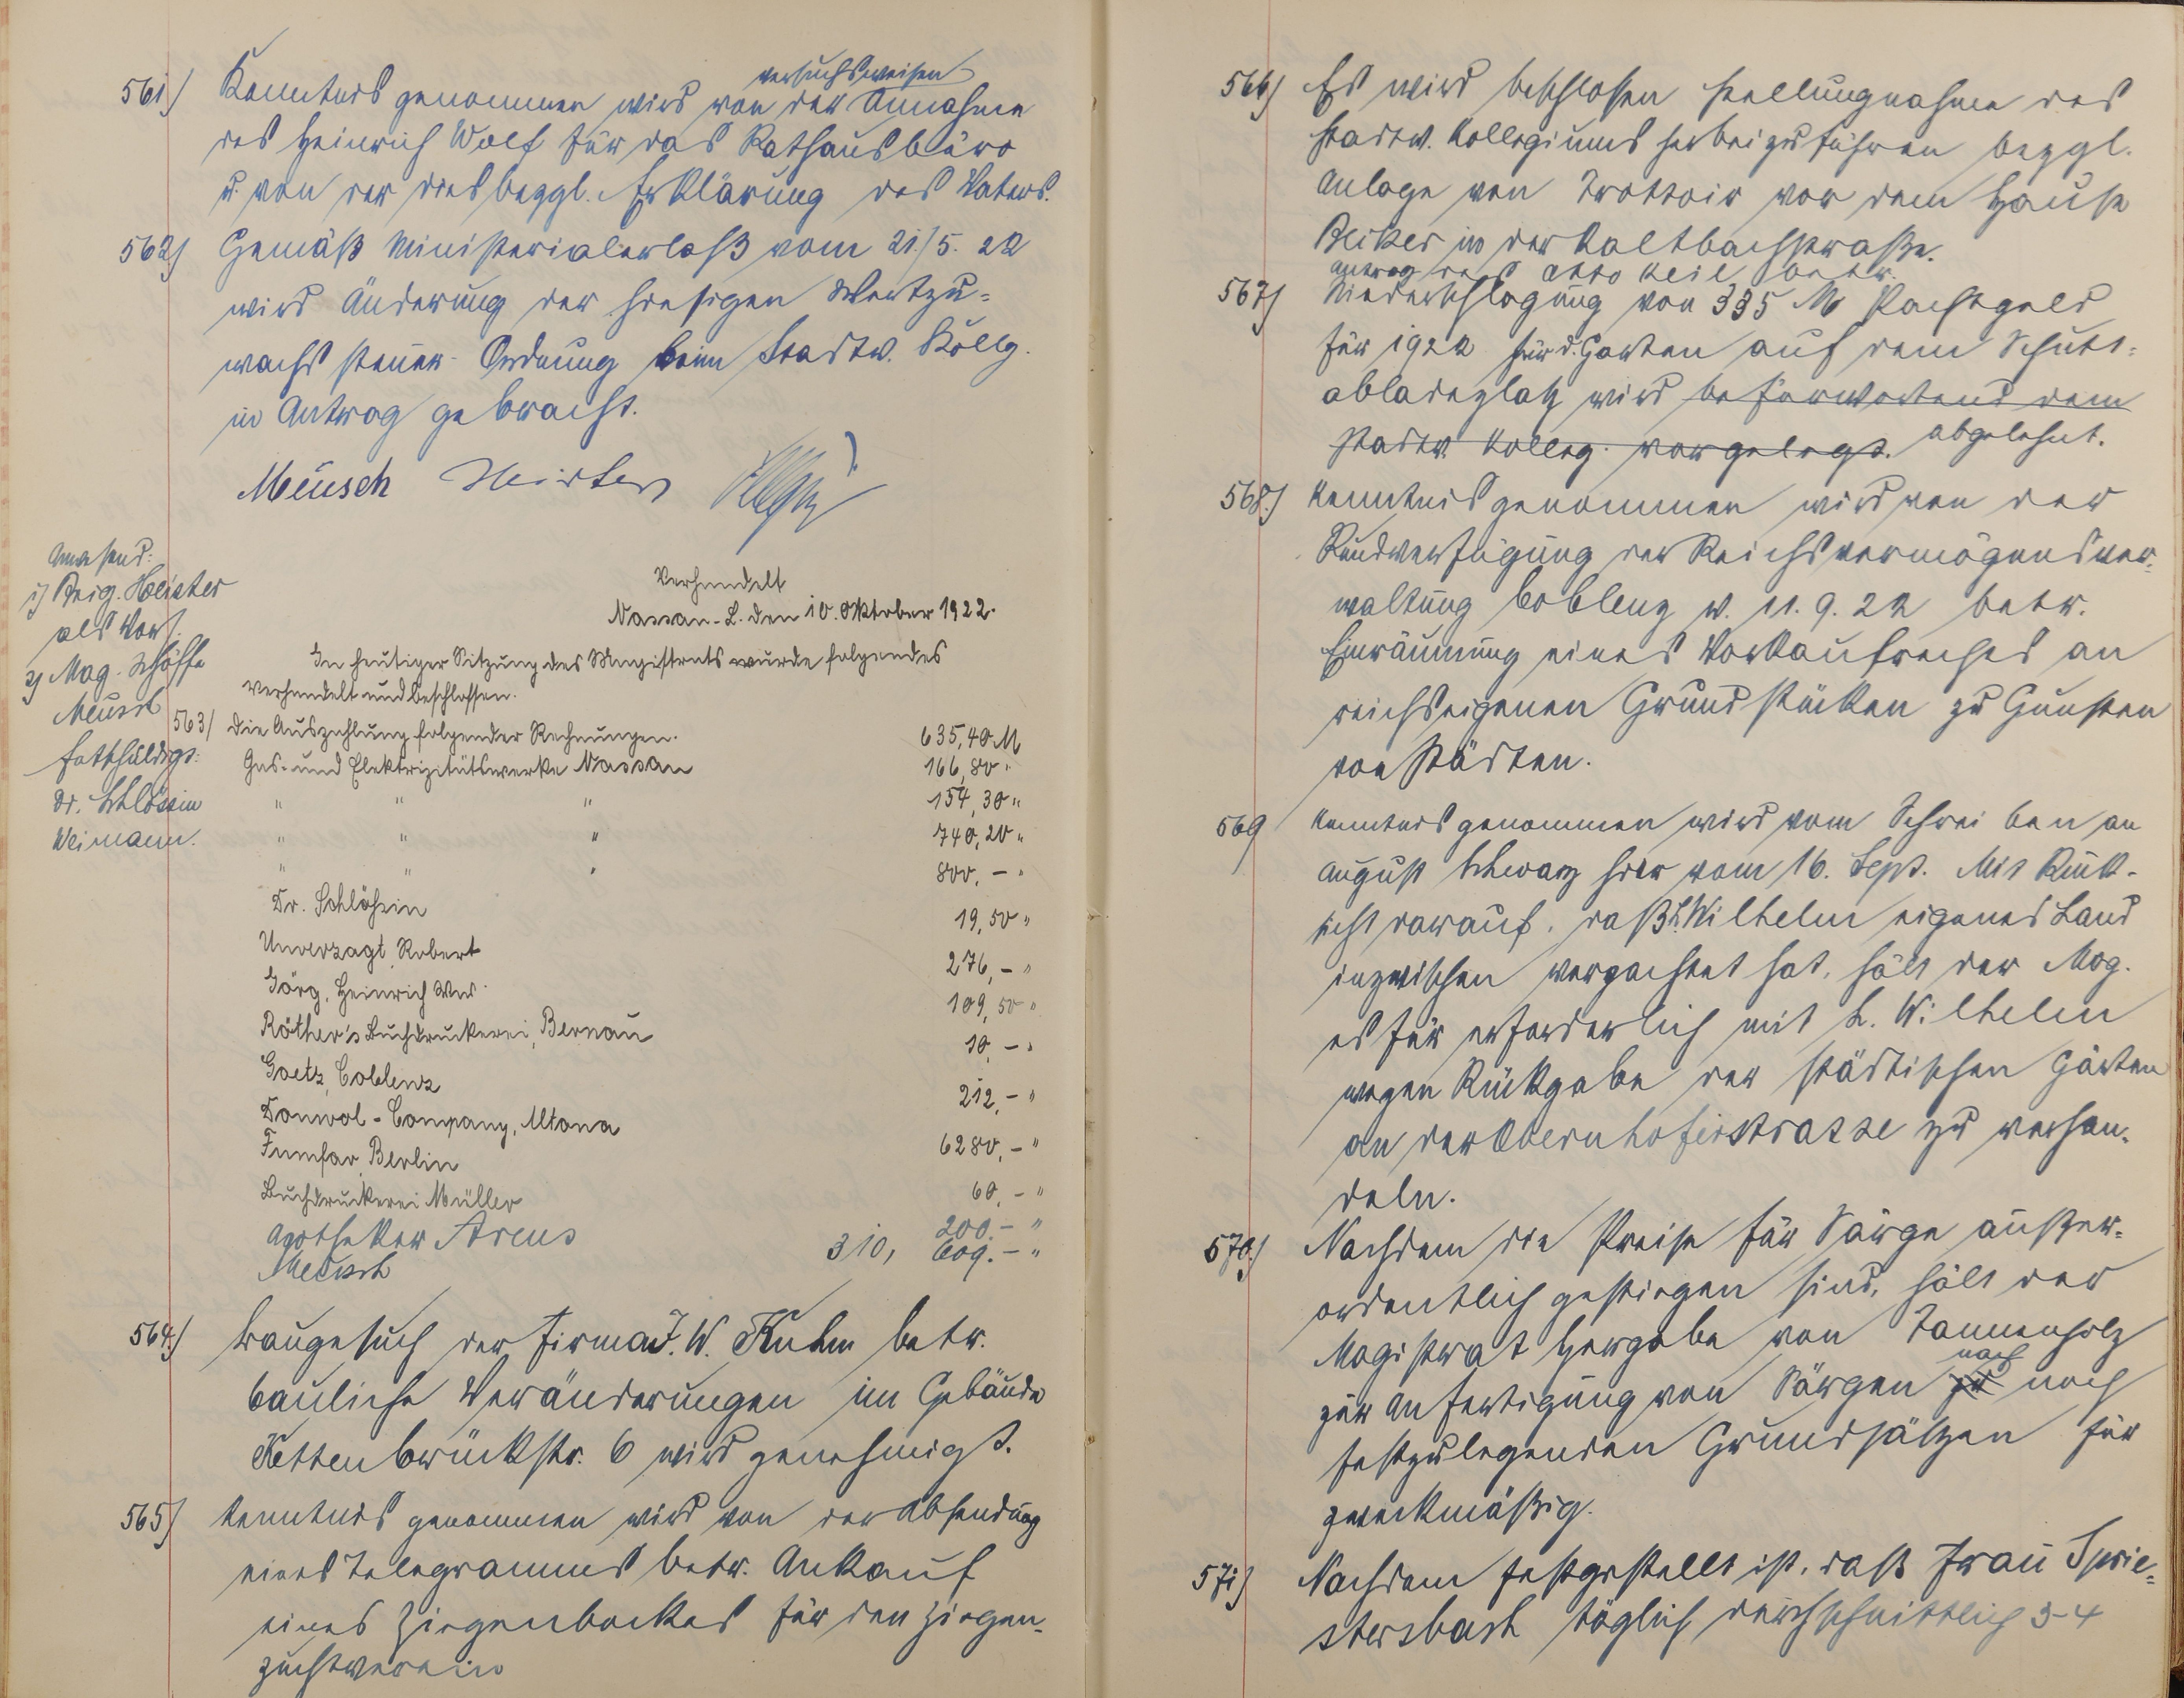 561) Kenntnis genommen wird von der versuchsweisen Annahme
des Heinrich Wolf für das Rathausbüro
u. von der diesbezgl. Erklärung des Vaters.
562) Gemäß Ministerialerlaß vom 21./5. 22
wird Änderung der hiesigen Wertzu=
wachssteuer-Ordnung beim Stadtv. Kollg.
in Antrag gebracht.
Meusch Heister
Anwesend:
1) Beig. Heister
als Vors.
2) Mag. Schöffe
Meusch
Entschuldigt:
Dr. Schlössin
Weimann.
Verhandelt
Nassau-L. den 10. Oktober 1922.
In heutiger Sitzung des Magistrats wurde folgendes
verhandelt und beschlossen.
563) Die Auszahlung folgender Rechnungen.
Gas- und Elektrizitätswerke Nassau 635,40 M
" " " 166,80 "
" " " 154,30 "
" " " 740,20 "
Dr. Schlößin 800,- "
Unverzagt, Robert 19,50 "
Görg, Heinrich Ww. 276,- "
Röther's Buchdruckerei, Bernau 109,50 "
Goetz, Coblenz 10,- "
Donwol-Company, Altona 212,- "
Fumfar, Berlin 6280,- "
Buchdruckerei Müller 60,- "
Apotheker Arens 200.- "
Meusch 310, 609.- "
564.) Baugesuch der Firma J. W. Kuhn betr.
bauliche Veränderungen im Gebäude
Kettenbrückstr. 6 wird genehmigt.
565) Kenntnis genommen wird von der Absendung
eines Telegramms betr. Ankauf
eines Ziegenbockes für den Ziegen=
zuchtverein
566) Es wird beschlossen Stellungnahme des
Stadtv. Kollegiums herbeizuführen bezgl.
Anlage von Trottoir vor dem Hause
Becker in der Kaltbachstraße.
Antrag des Otto Keil betr.
567) Niederschlagung von 335 M Pachtgeld
für 1922 für d. Garten auf dem Schutt=
abladeplatz wird befürwortend dem
Stadtv. Kolleg. vorgelegt. abgelehnt.
568.) Kenntnis genommen wird von der
Rundverfügung der Reichsvermögensver=
waltung Coblenz v. 11. 9. 22 betr.
Einräumung eines Vorkaufreches an
reichseigenen Grundstücken zu Gunsten
von Städten.
569 Kenntnis genommen wird vom Schreiben an
August Schwarz hier vom 16. Sept. Mit Rück-
sicht darauf, daß L. Wilhelm eigenes Land
inzwischen verpachtet hat, hält der Mag.
es für erforderlich mit L. Wilhelm
wegen Rückgabe der städtischen Gärten
an der Obernhoferstrasse zu verhan=
deln.
570.) Nachdem die Preise für Särge außer=
ordentlich gestiegen sind, hält der
Magistrat Hergabe von Tannenholz
zur Anfertigung von Särgen zu nach noch
festzulegenden Grundsätzen für
zweckmäßig.
571) Nachdem festgestellt ist, daß Frau Sprie=
stersbach täglich durchschnittlich 3-4